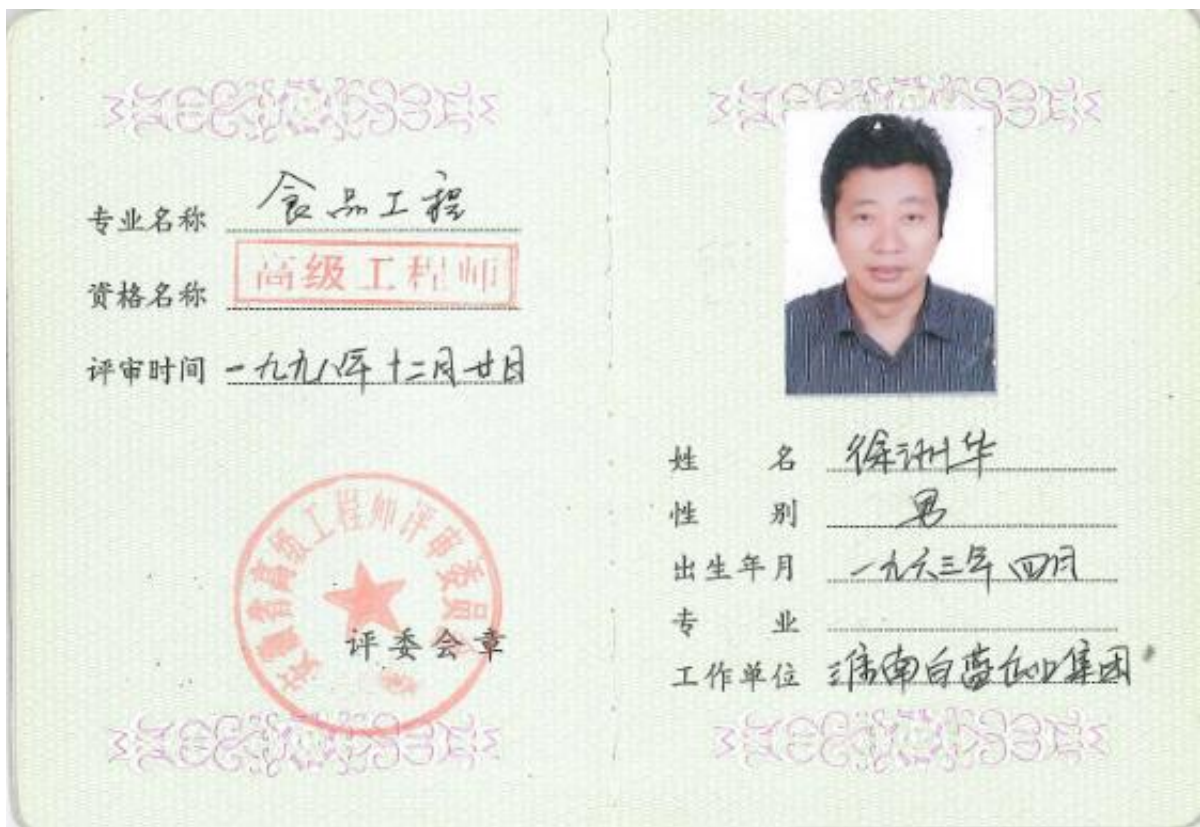 专业名称 食品工程
资格名称 高级工程师
评审时间 一九九八年十二月廿日
安徽省高级工程师评审委员会
评委会章
姓 名 徐洲华
性 别 男
出生年月 一九六三年四月
专 业
工作单位 淮南白蓝企业集团